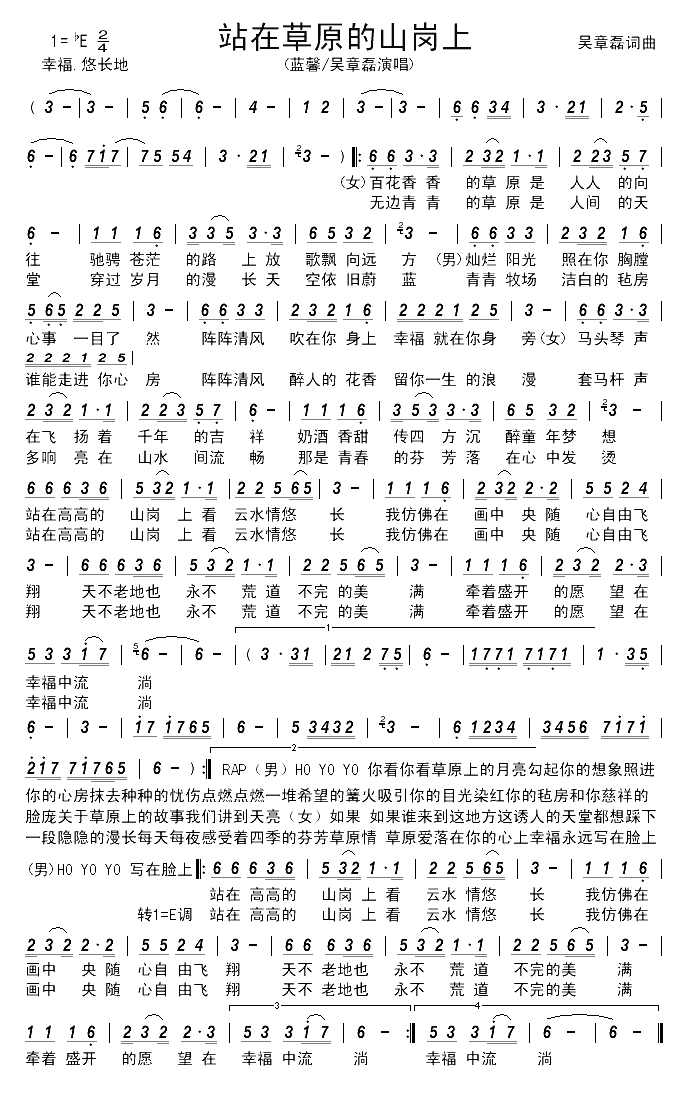 站在草原的山岗上
1=♭E 2/4
吴章磊词曲
幸福.悠长地
(蓝馨/吴章磊演唱)
( 3 - | 3 - | 5 6 | 6 - | 4 - | 1 2 | 3 - | 3 - | 6 6 3 4 | 3 · 2 1 | 2 · 5 |
6 - | 6 7 1 7 | 7 5 5 4 | 3 · 2 1 | 3 - ) ‖: 6 6 3·3 | 2 3 2 1·1 | 2 2 3 5 7 |
(女)百花香 香 的草 原 是 人人 的向
无边青 青 的草 原 是 人间 的天
6 - | 1 1 1 6 | 3 3 5 3·3 | 6 5 3 2 | 3 - | 6 6 3 3 | 2 3 2 1 6 |
往 驰骋 苍茫 的路 上 放 歌飘 向远 方 (男)灿烂 阳光 照在你 胸膛
堂 穿过 岁月 的漫 长 天 空依 旧蔚 蓝 青青 牧场 洁白的 毡房
5 6 5 2 2 5 | 3 - | 6 6 3 3 | 2 3 2 1 6 | 2 2 2 1 2 5 | 3 - | 6 6 3·3 |
心事 一目了 然 阵阵清风 吹在你 身上 幸福 就在你身 旁(女) 马头琴 声
2 2 2 2 1 2 5 |
谁能走进 你心 房 阵阵清风 醉人的 花香 留你一生 的浪 漫 套马杆 声
2 3 2 1·1 | 2 2 3 5 7 | 6 - | 1 1 1 6 | 3 5 3 3·3 | 6 5 3 2 | 3 - |
在飞 扬 着 千年 的吉 祥 奶酒 香甜 传四 方 沉 醉童 年梦 想
多响 亮 在 山水 间流 畅 那是 青春 的芬 芳 落 在心 中发 烫
6 6 6 3 6 | 5 3 2 1·1 | 2 2 5 6 5 | 3 - | 1 1 1 6 | 2 3 2 2·2 | 5 5 2 4 |
站在高高的 山岗 上 看 云水情悠 长 我仿佛在 画中 央 随 心自由飞
站在高高的 山岗 上 看 云水情悠 长 我仿佛在 画中 央 随 心自由飞
3 - | 6 6 6 3 6 | 5 3 2 1·1 | 2 2 5 6 5 | 3 - | 1 1 1 6 | 2 3 2 2·3 |
翔 天不老地也 永不 荒 道 不完 的美 满 牵着盛开 的愿 望 在
翔 天不老地也 永不 荒 道 不完 的美 满 牵着盛开 的愿 望 在
1
5 3 3 1 7 | 6 - | 6 - | ( 3 · 3 1 | 2 1 2 7 5 | 6 - | 1 7 7 1 7 1 7 1 | 1 · 3 5 |
幸福中流 淌
幸福中流 淌
6 - | 3 - | 1 7 1 7 6 5 | 6 - | 5 3 4 3 2 | 3 - | 6 1 2 3 4 | 3 4 5 6 7 1 7 1 |
2
2 1 7 7 1 7 6 5 | 6 - ) :‖ RAP (男) HO YO YO 你看你看草原上的月亮勾起你的想象照进
你的心房抹去种种的忧伤点燃点燃一堆希望的篝火吸引你的目光染红你的毡房和你慈祥的
脸庞关于草原上的故事我们讲到天亮(女)如果 如果谁来到这地方这诱人的天堂都想踩下
一段隐隐的漫长每天每夜感受着四季的芬芳草原情 草原爱落在你的心上幸福永远写在脸上
(男)HO YO YO 写在脸上 ‖: 6 6 6 3 6 | 5 3 2 1·1 | 2 2 5 6 5 | 3 - | 1 1 1 6 |
站在 高高的 山岗 上 看 云水 情悠 长 我仿佛在
转1=E调 站在 高高的 山岗 上 看 云水 情悠 长 我仿佛在
2 3 2 2·2 | 5 5 2 4 | 3 - | 6 6 6 3 6 | 5 3 2 1·1 | 2 2 5 6 5 | 3 - |
画中 央 随 心自 由飞 翔 天不 老地也 永不 荒 道 不完的美 满
画中 央 随 心自 由飞 翔 天不 老地也 永不 荒 道 不完的美 满
3 4
1 1 1 6 | 2 3 2 2·3 | 5 3 3 1 7 | 6 - :‖ 5 3 3 1 7 | 6 - | 6 - ‖
牵着 盛开 的愿 望 在 幸福 中流 淌 幸福 中流 淌